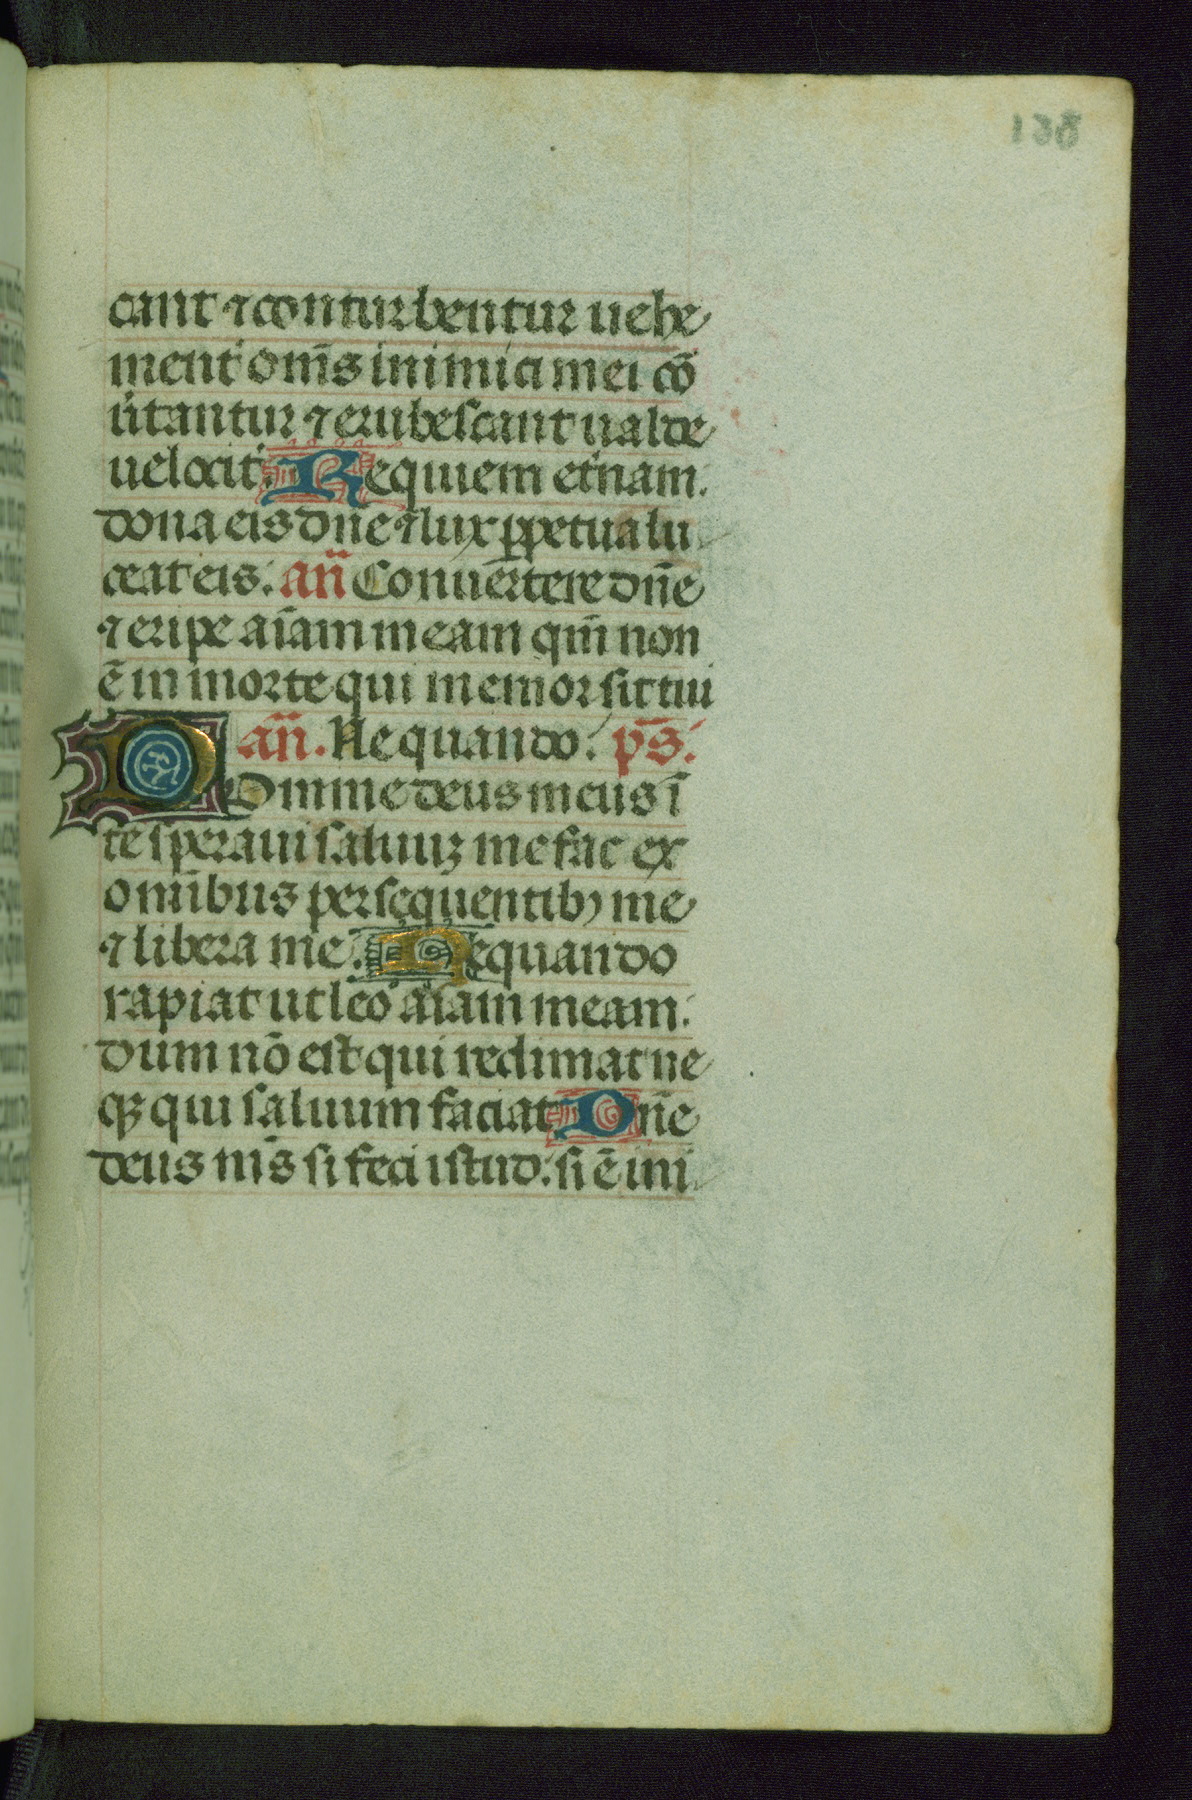 138
cant ⁊ conturbentur uehe
ment᷑ om̄s inimici mei cō
u᷑tantur ⁊ erubescant ualde
uelocit᷑. Requiem et᷑nam.
dona eis dn̄e ⁊ lux ꝑpetua lu
ceat eis. an̄ Conuertere dn̄e
⁊ eripe aīam meam qm̄ non
ē in morte qui memor sit tui
an̄. Ne quando. ps̄.
Domine deus meus ī
te speraui saluuꝫ me fac ex
omībus persequentibꝫ me
⁊ libera me. Nequando
rapiat ut leo aīam meam.
dum nō est qui redimat ne
qꝫ qui saluum faciat. Dn̄e
deus m̄s si feci istud. si ē ini